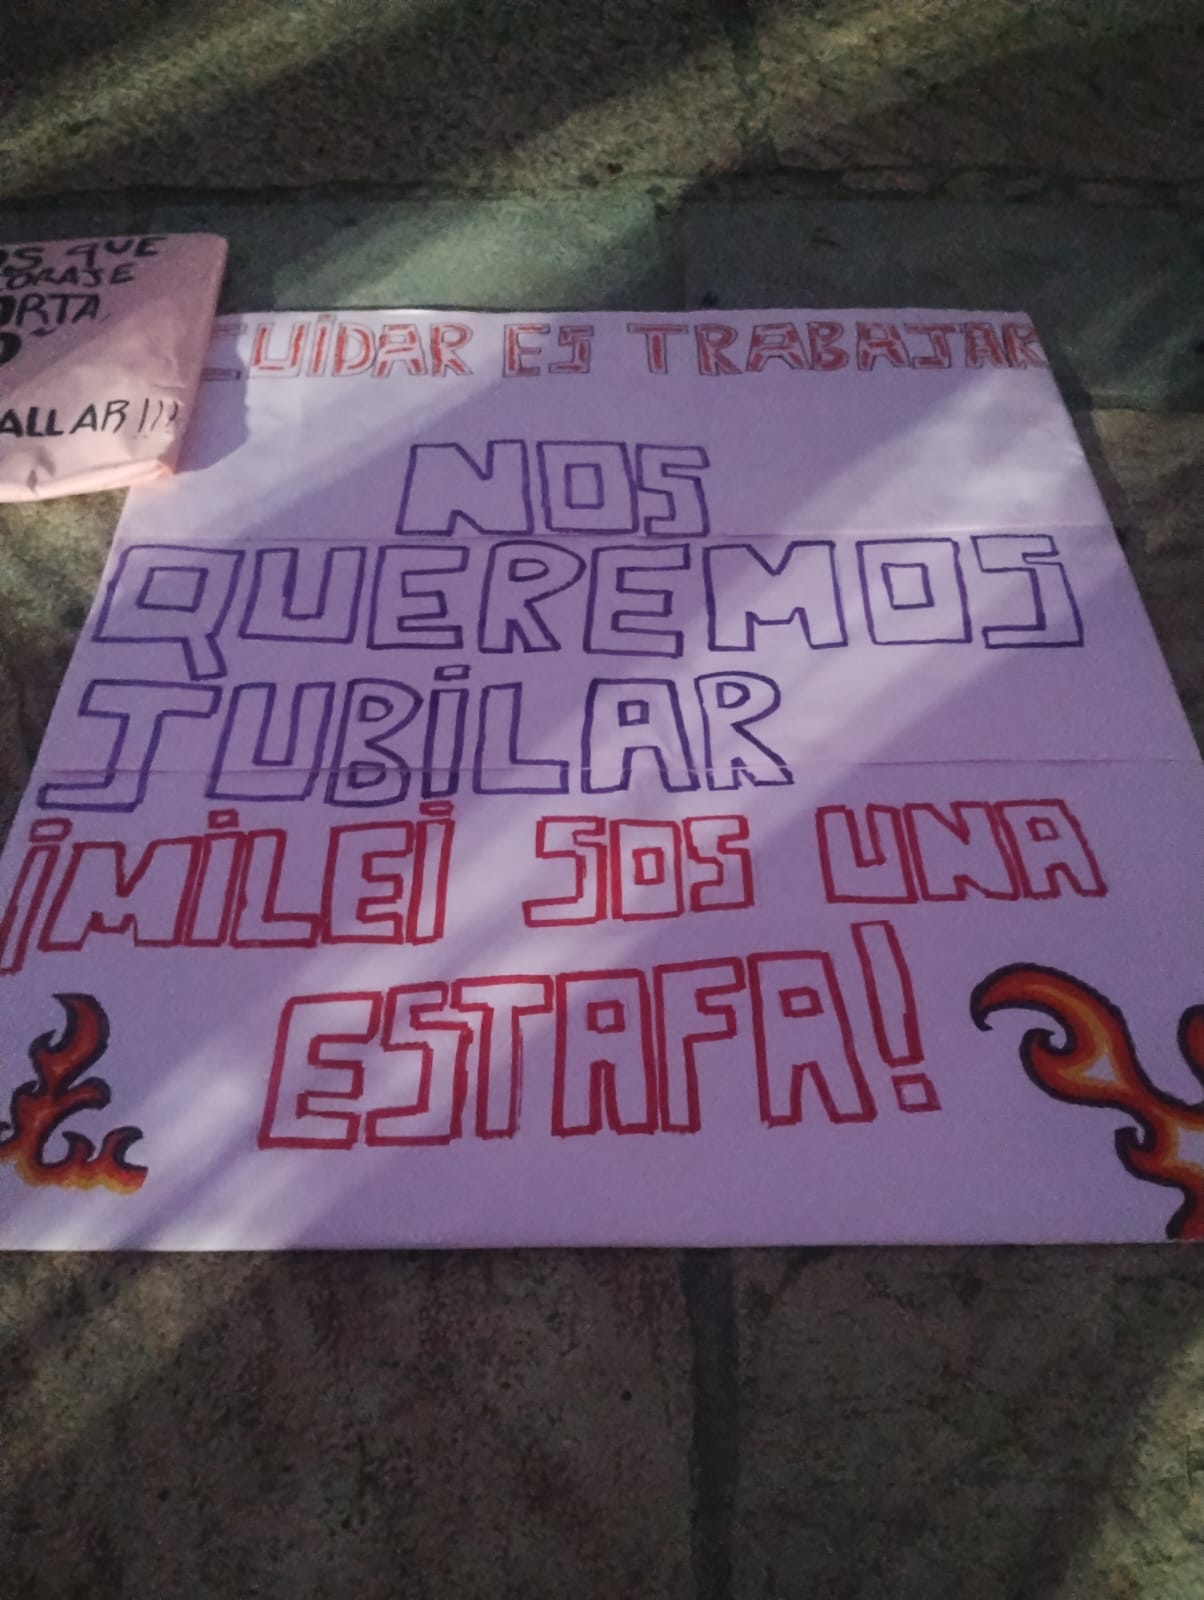 QUE
ORTA
CUIDAR ES TRABAJAR
NOS
QUEREMOS
JUBILAR
¡MILEI SOS UNA
ESTAFA!